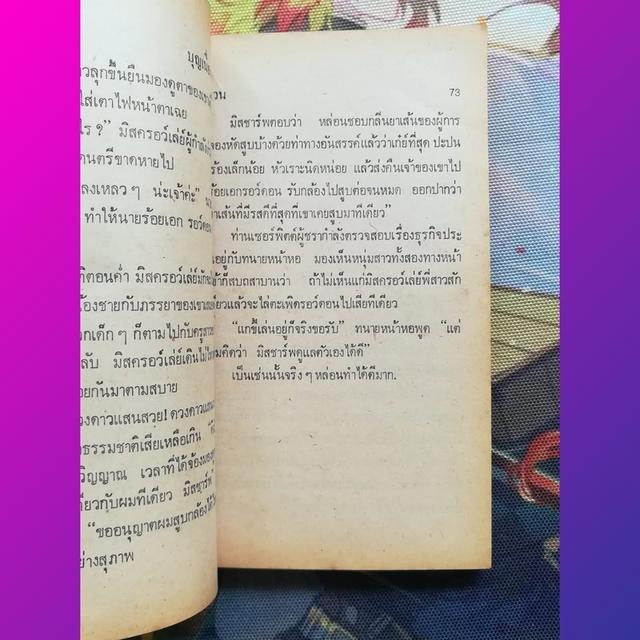 บุญเ
วลุกขึ้นยืนมองดูตาของ
ใส่เตาไฟหน้าตาเฉย
ไร ?” มิสครอว์เล่ย์ผู้กำลัง
ดนตรีขาดหายไป
ลงเหลวๆ น่ะเจ้าค่ะ”
ทำให้นายร้อยเอก รอว์ดอน
ทิตอนค่ำ มิสครอว์เล่ย์มัก
น้องชายกับภรรยาของเขา
วกเด็กๆ ก็ตามไปกับครู
ลับ มิสครอว์เล่ย์เดินไม่
อยกันมาตามสบาย
วงดาวแสนสวย! ดวงดาวแสน
ธรรมชาติเสียเหลือเกิน
วิญญาณ เวลาที่ได้จ้องมอง
ดียวกับผมทีเดียว มิสชาร์พ”
“ขออนุญาตผมสูบกล้องได้
ย่างสุภาพ
วน 73
มิสชาร์พตอบว่า หล่อนชอบกลิ่นยาเส้นของผู้การ
ลองหัดสูบบ้างด้วยท่าทางอันสรรค์แล้วว่าเก๋ย์ที่สุด ปะปน
ร้องเล็กน้อย หัวเราะนิดหน่อย แล้วส่งคืนเจ้าของเขาไป
ร้อยเอกรอว์ดอน รับกล้องไปสูบต่อจนหมด ออกปากว่า
าเส้นที่มีรสดีที่สุดที่เขาเคยสูบมาทีเดียว”
ท่านเซอร์พิตต์ผู้ชรากำลังตรวจสอบเรื่องธุรกิจประ
อยู่กับทนายหน้าหอ มองเห็นหนุ่มสาวทั้งสองทางหน้า
ก็สบถสาบานว่า ถ้าไม่เห็นแก่มิสครอว์เล่ย์พี่สาวสัก
เดียวแล้วจะไล่ตะเพิดรอว์ดอนไปเสียทีเดียว
“แกขี้เล่นอยู่ก็จริงขอรับ” ทนายหน้าหอพูด “แต่
มคิดว่า มิสชาร์พดูแลตัวเองได้ดี”
เป็นเช่นนั้นจริงๆ หล่อนทำได้ดีมาก.